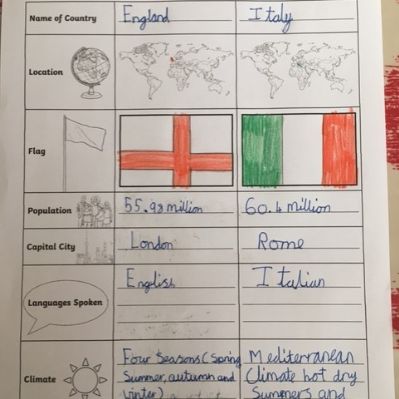 Name of Country England Italy
Location
Flag
Population 55.98 million 60.4 million
Capital City London Rome
Languages Spoken English Italian
Climate
Four Seasons (Spring
Summer, autumn and
winter)
Mediterranean
Climate hot dry
Summers and